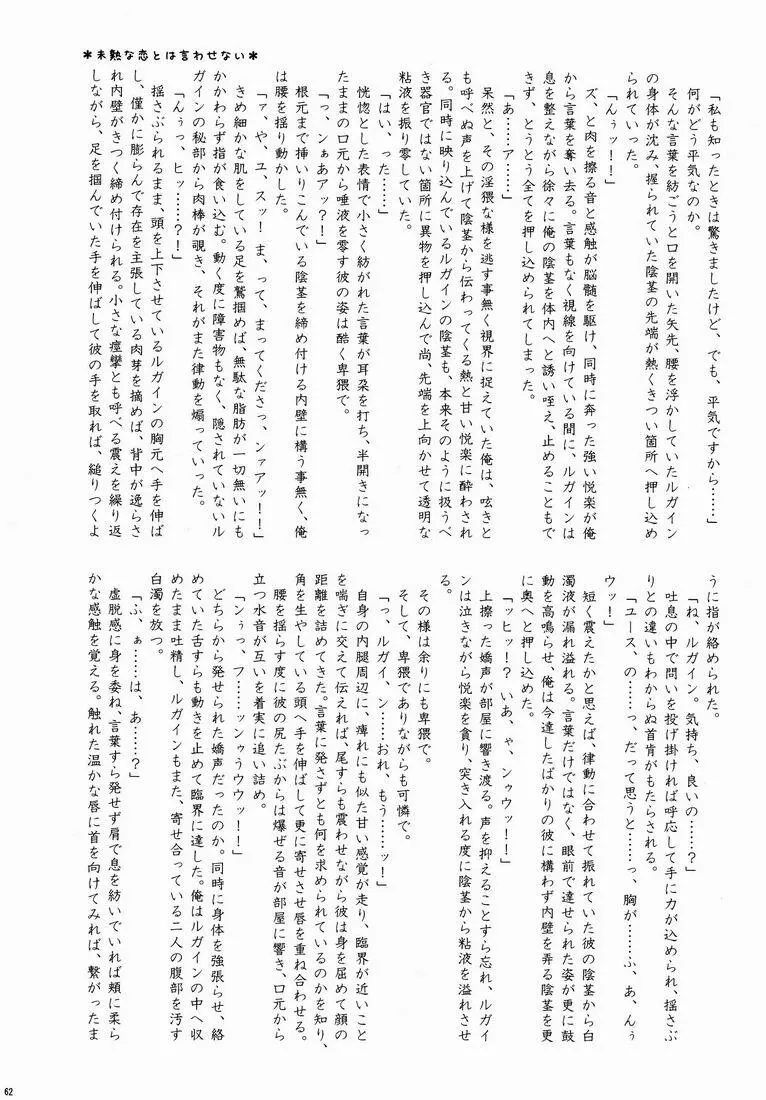 ＊未熟な恋とは言わせない＊
「私も知ったときは驚きましたけど、でも、平気ですから……」
何がどう平気なのか。
そんな言葉を紡ごうと口を開いた矢先、腰を浮かしていたルガイン
の身体が沈み、握られていた陰茎の先端が熱くきつい箇所へ押し込め
られていった。
「んぅッ！！」
ズ、と肉を擦る音と感触が脳髄を駆け、同時に奔った強い悦楽が俺
から言葉を奪い去る。言葉もなく視線を向けている間に、ルガインは
息を整えながら徐々に俺の陰茎を体内へと誘い咥え、止めることもで
きず、とうとう全てを押し込められてしまった。
「あ……ア……」
呆然と、その淫猥な様を逃す事無く視界に捉えていた俺は、呟きと
も呼べぬ声を上げて陰茎から伝わってくる熱と甘い悦楽に酔わされ
る。同時に映り込んでいるルガインの陰茎も、本来そのように扱うべ
き器官ではない箇所に異物を押し込んで尚、先端を上向かせて透明な
粘液を振り零していた。
「はい、った……」
恍惚とした表情で小さく紡がれた言葉が耳朶を打ち、半開きになっ
たままの口元から唾液を零す彼の姿は酷く卑猥で。
「っ、ンぁあアッ？」
根元まで挿いりこんでいる陰茎を締め付ける内壁に構う事無く、俺
は腰を揺り動かした。
「ァ、や、ユ、スッ！ま、って、まってくださっ、ンァアッ！！」
きめ細かな肌をしている足を鷲掴めば、無駄な脂肪が一切無いにも
かかわらず指が食い込む。動く度に障害物もなく、隠されていないル
ガインの秘部から肉棒が覗き、それがまた律動を煽っていった。
「んぅっ、ヒッ……？！」
揺さぶられるまま、頭を上下させているルガインの胸元へ手を伸ば
し、僅かに膨らんで存在を主張している肉芽を摘めば、背中が逸らさ
れ内壁がきつく締め付けられる。小さな痙攣とも呼べる震えを繰り返
しながら、足を掴んでいた手を伸ばして彼の手を取れば、縋りつくよ
うに指が絡められた。
「ね、ルガイン。気持ち、良いの……？」
吐息の中で問いを投げ掛ければ呼応して手に力が込められ、揺さぶ
りとの違いもわからぬ首肯がもたらされる。
「ユース、の……っ、だって思うと……っ、胸が……ふ、あ、んぅ
ウッ！」
短く震えたかと思えば、律動に合わせて振れていた彼の陰茎から白
濁液が漏れ溢れる。言葉だけではなく、眼前で達せられた姿が更に鼓
動を高鳴らせ、俺は今達したばかりの彼に構わず内壁を弄る陰茎を更
に奥へと押し込めた。
「ッヒッ！？いあ、ゃ、ンゥウッ！」
上擦った嬌声が部屋に響き渡る。声を抑えることすら忘れ、ルガイ
ンは泣きながら悦楽を貪り、突き入れる度に陰茎から粘液を溢れさせ
る。
その様は余りにも卑猥で。
そして、卑猥でありながらも可憐で。
「っ、ルガイ、ン……おれ、もう……ッ！」
自身の内腿周辺に、痺れにも似た甘い感覚が走り、臨界が近いこと
を喘ぎに交えて伝えれば、尾すらも震わせながら彼は身を屈めて顔の
距離を詰めてきた。言葉に発さずとも何を求められているのかを知り、
角を生やしている頭へ手を伸ばして更に寄せさせ唇を重ね合わせる。
腰を揺らす度に彼の尻たぶからは爆ぜる音が部屋に響き、口元から
立つ水音が互いを着実に追い詰め。
「ンぅっ、フ……ッンぅうウウッ！！」
どちらから発せられた嬌声だったのか。同時に身体を強張らせ、絡
めていた舌すらも動きを止めて臨界に達した。俺はルガインの中へ収
めたまま吐精し、ルガインもまた、寄せ合っている二人の腹部を汚す
白濁を放つ。
「ふ、ぁ……は、あ……？」
虚脱感に身を委ね、言葉すら発せず肩で息を紡いでいれば頬に柔ら
かな感触を覚える。触れた温かな唇に首を向けてみれば、繋がったま
62